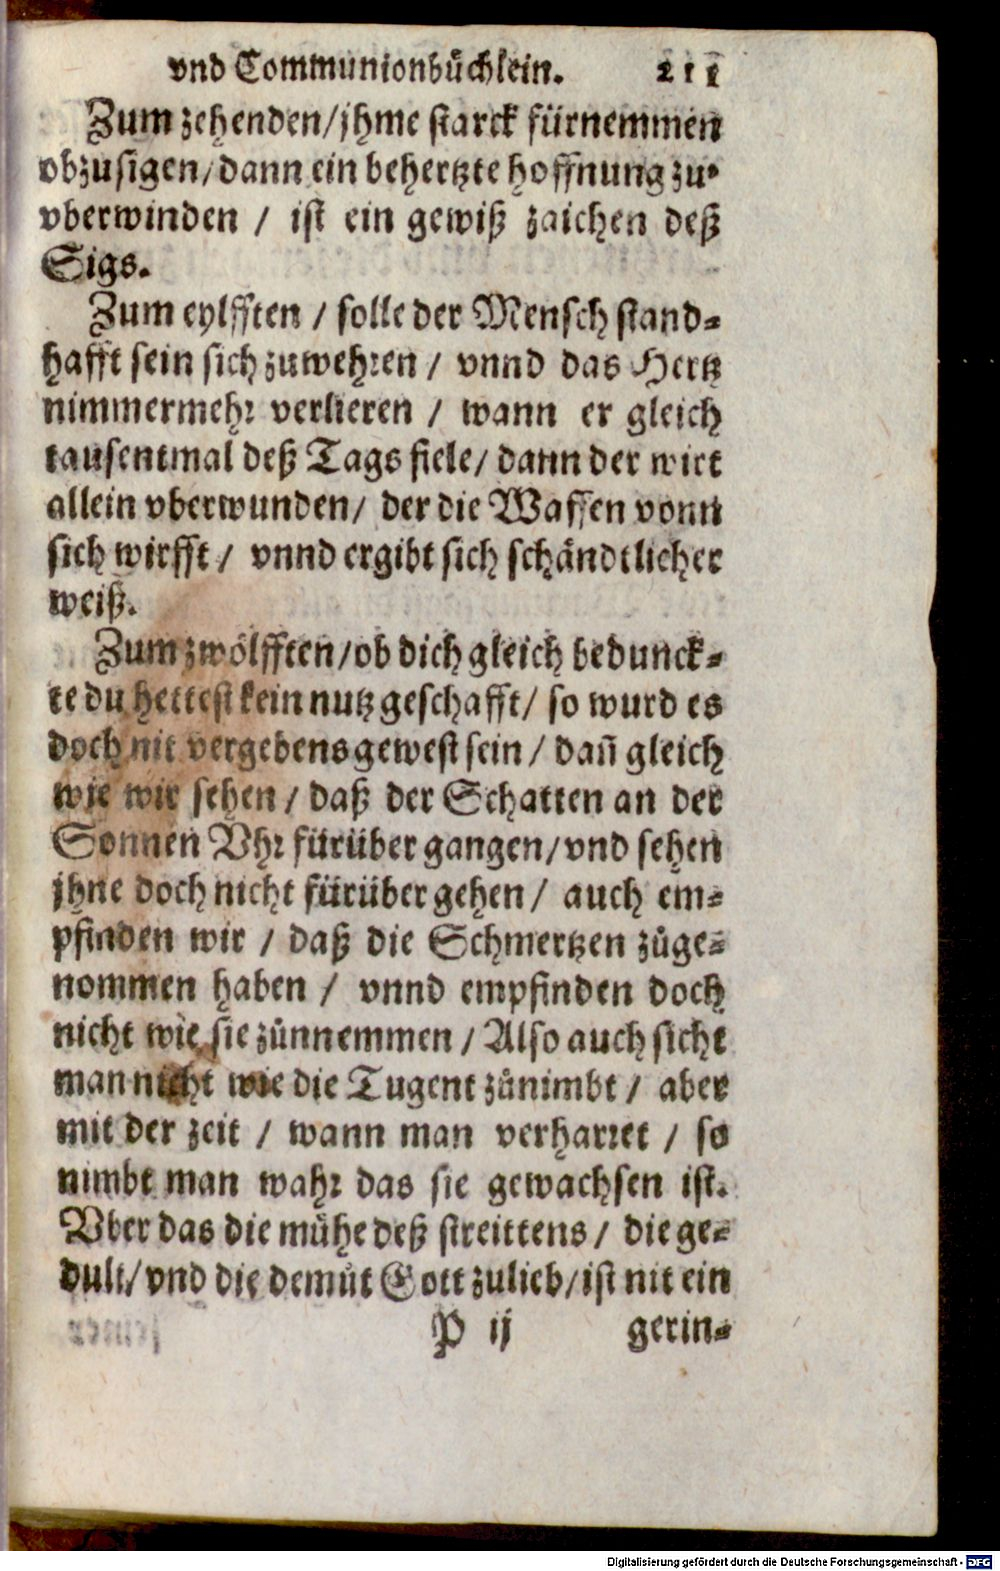 vnd Communionbůchlein. 211
Zum zehenden/jhme starck fürnemmen
obzusigen/dann ein behertzte hoffnung zu-
vberwinden / ist ein gewiß zaichen deß
Sigs.
Zum eylfften / solle der Mensch stand-
hafft sein sich zuwehren / vnnd das Hertz
nimmermehr verlieren / wann er gleich
tausentmal deß Tags fiele/ dann der wirt
allein vberwunden/ der die Waffen vonn
sich wirfft / vnnd ergibt sich schändtlicher
weiß.
Zum zwölfften/ob dich gleich bedunck-
te du hettest kein nutz geschafft/ so wurd es
doch nit vergebens gewest sein / dañ gleich
wie wir sehen / daß der Schatten an der
Sonnen Vhr fürüber gangen/vnd sehen
jhne doch nicht fürüber gehen / auch em-
pfinden wir / daß die Schmertzen zůge-
nommen haben / vnnd empfinden doch
nicht wie sie zůnnemmen / Also auch sicht
man nicht wie die Tugent zůnimbt / aber
mit der zeit / wann man verharret / so
nimbt man wahr das sie gewachsen ist.
Vber das die mühe deß streittens / die ge-
dult/ vnd die demůt Gott zulieb/ist nit ein
P ij gerin-
Digitalisierung gefördert durch die Deutsche Forschungsgemeinschaft - DFG